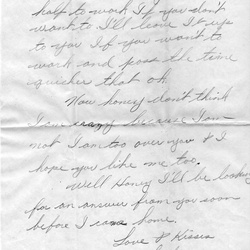 half to work If you don't
want to I'll leave it up
to you If you want to
work and pass the time
quicker that ok.
Now honey don't think
I am crazy because I am
not I am too over you & I
hope you like me too.
Well Honey I'll be looking
for an answer from you soon
before I come home.
Love & Kisses